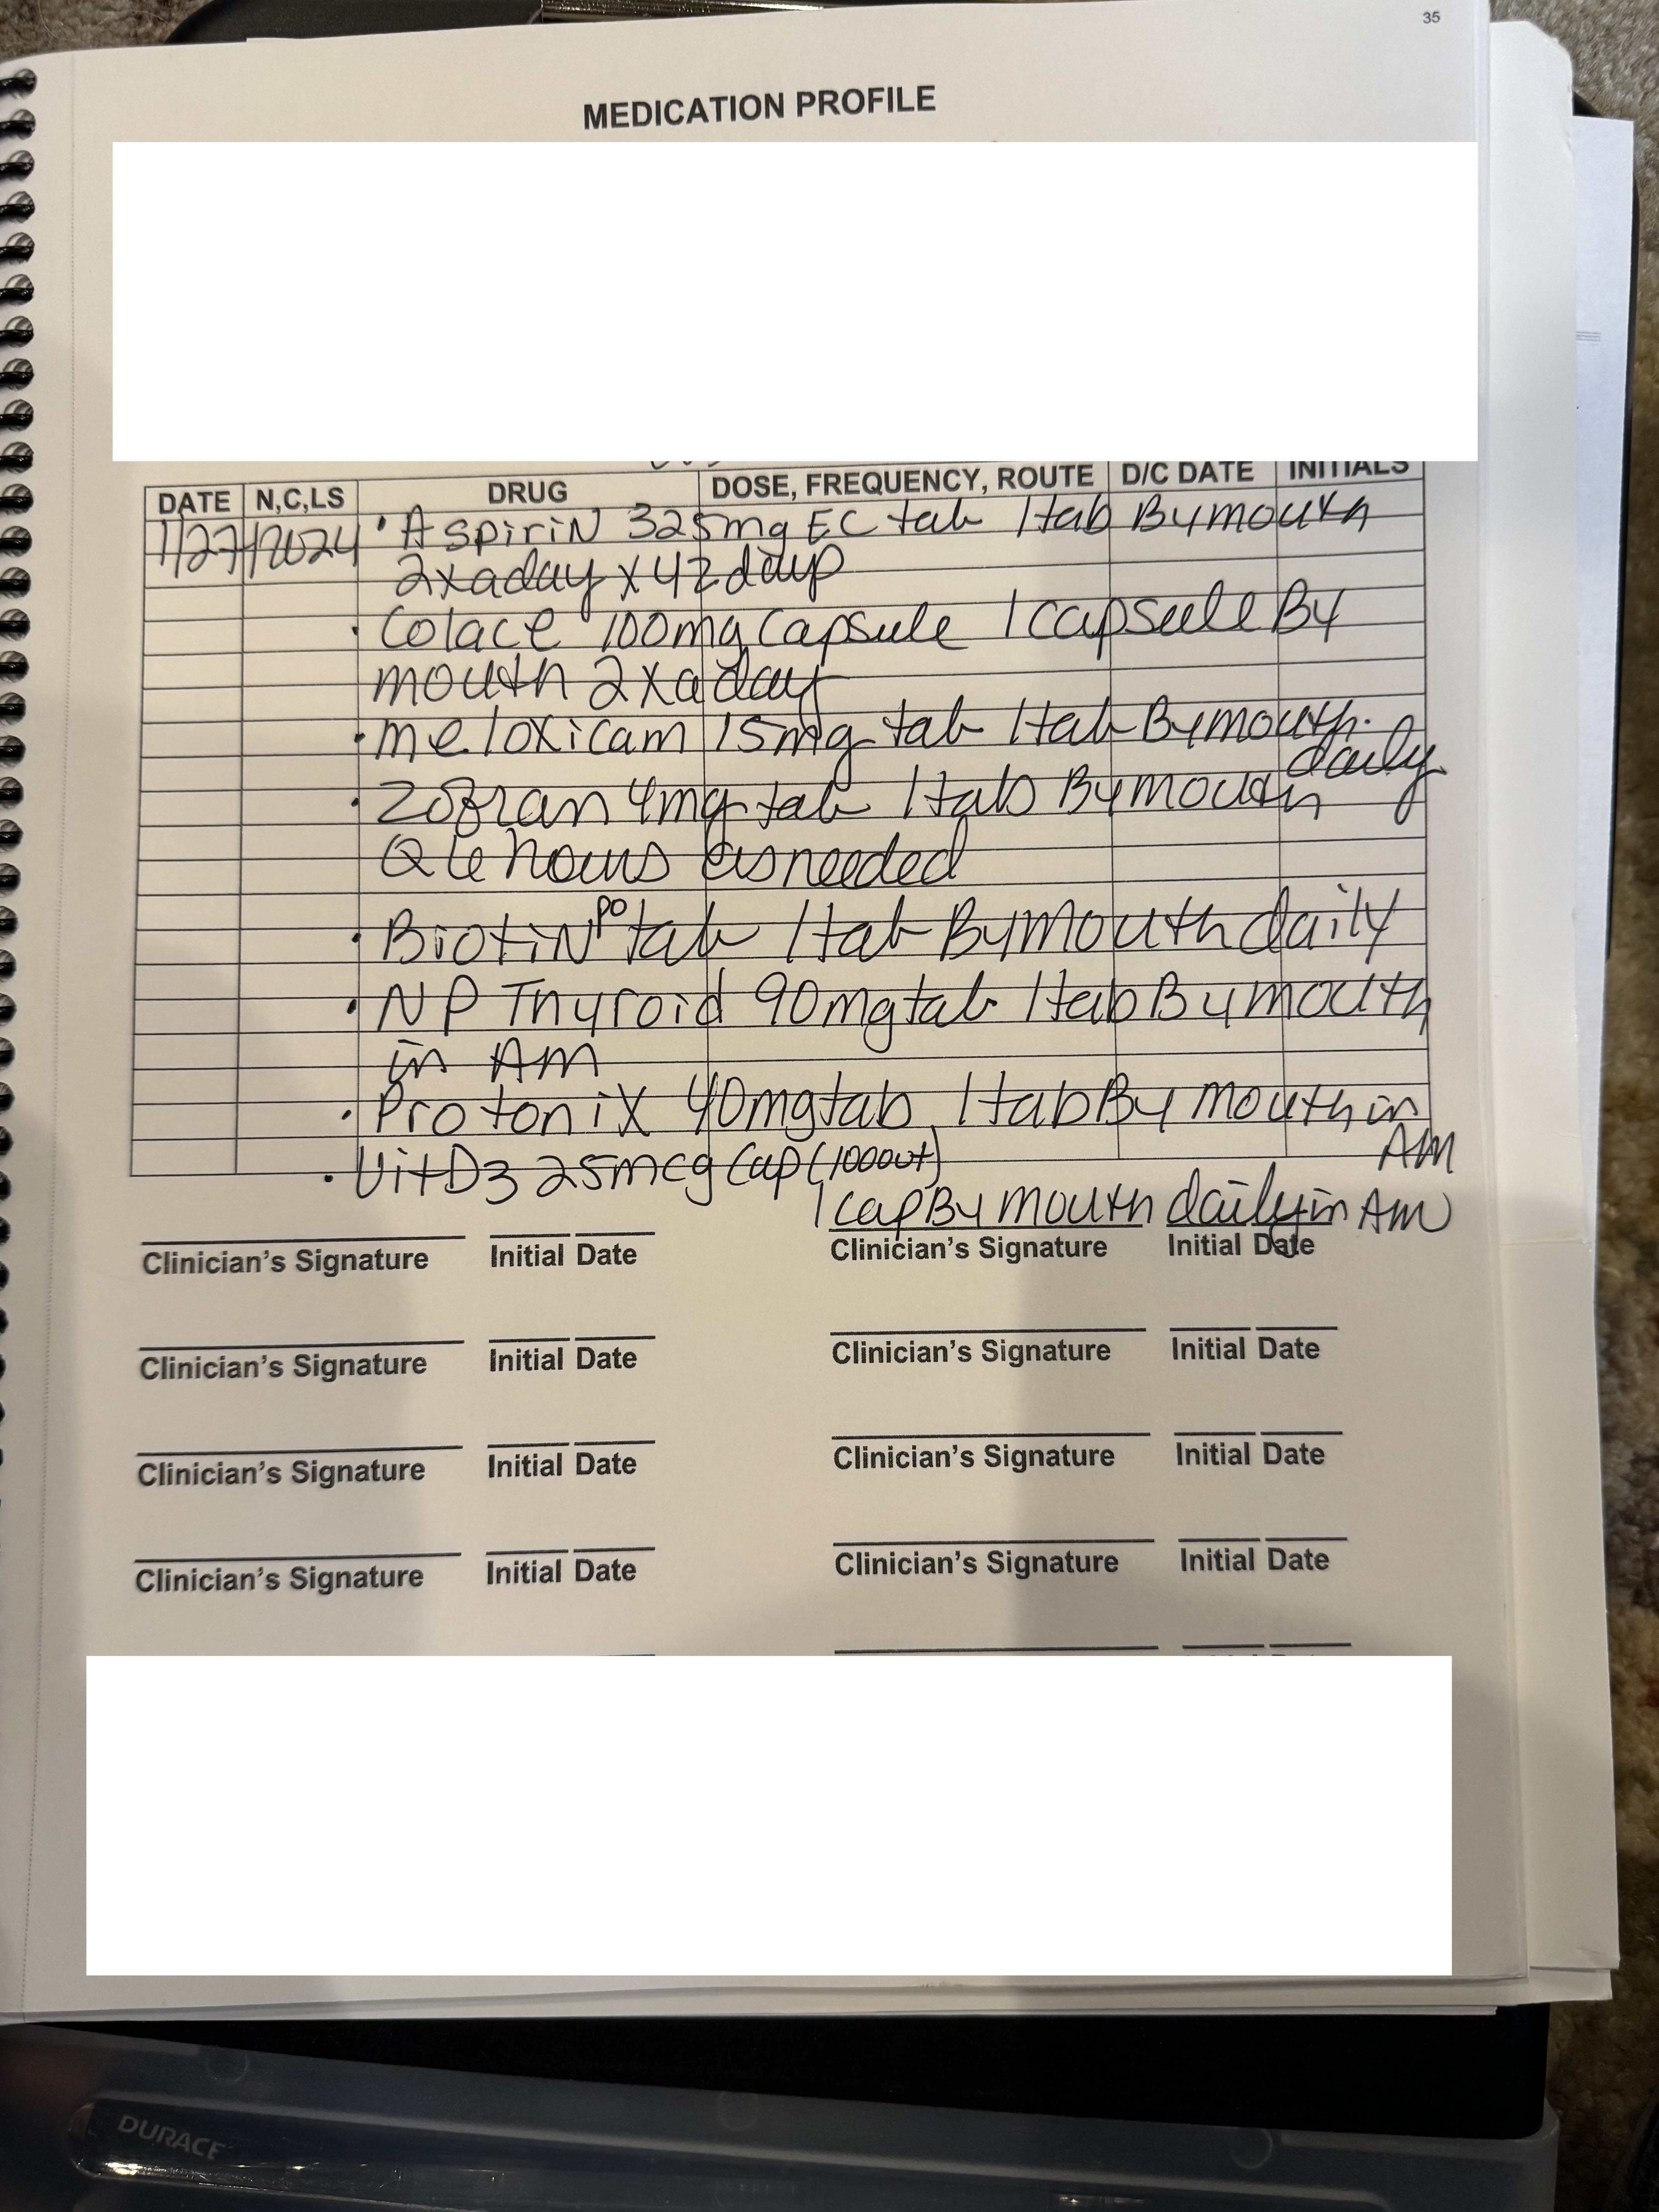 35
MEDICATION PROFILE
DATE N,C,LS DRUG DOSE, FREQUENCY, ROUTE D/C DATE INITIALS
1/27/2024 • Aspirin 325mg EC tab 1 tab By mouth
2x a day x 42 days
• Colace 100mg Capsule 1 capsule By
mouth 2x a day
• meloxicam 15mg tab 1 tab By mouth.
daily
• Zofran 4mg tab 1 tab By mouth
Q 6 hours as needed
• Biotin PO tab 1 tab By mouth daily
• NP Thyroid 90mg tab 1 tab By mouth
in AM
• Protonix 40mg tab 1 tab By mouth in
AM
• Vit D3 25mcg Cap (1000ut)
1 cap By mouth daily in AM
Clinician's Signature Initial Date Clinician's Signature Initial Date
Clinician's Signature Initial Date Clinician's Signature Initial Date
Clinician's Signature Initial Date Clinician's Signature Initial Date
Clinician's Signature Initial Date Clinician's Signature Initial Date